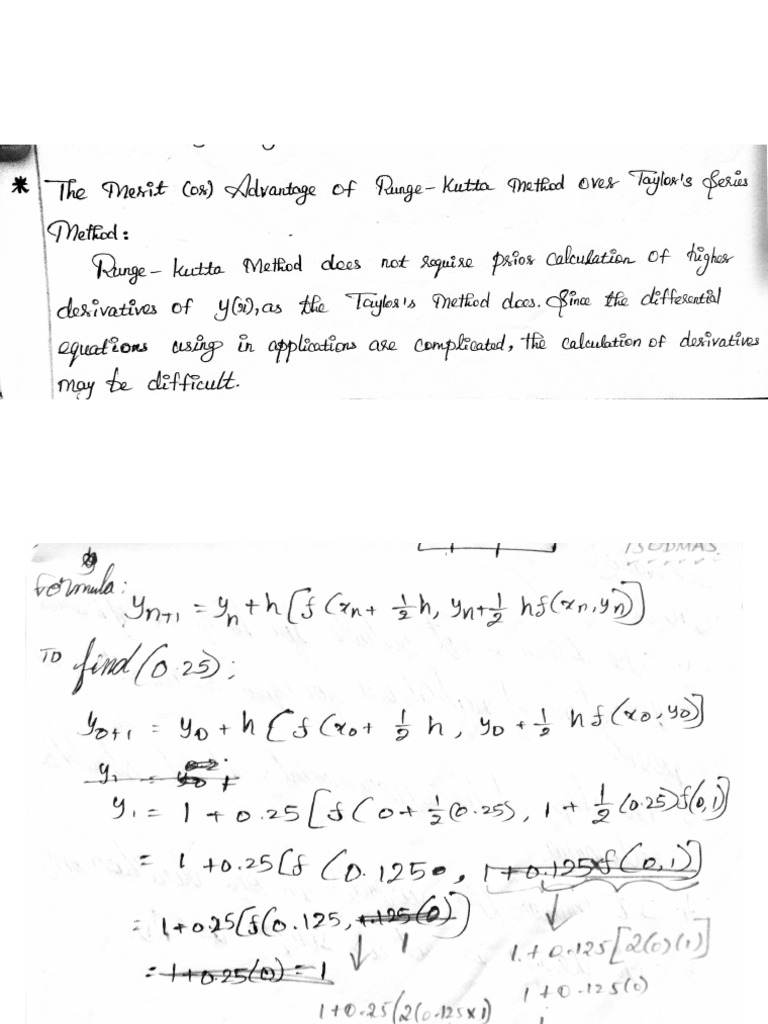 * The Merit (or) Advantage of Runge-Kutta Method over Taylor's Series
Method:
Runge-kutta Method does not require prior calculation of higher
derivatives of y(x), as the Taylor's Method does. Since the differential
equations using in applications are complicated, the calculation of derivatives
may be difficult.
Formula:
yn+1 = yn + h[f(xn + 1/2 h, yn + 1/2 hf(xn, yn)]
TO find (0.25);
y0+1 = y0 + h[f(x0 + 1/2 h, y0 + 1/2 hf(x0, y0)]
y1 = 1 + 0.25[f(0 + 1/2(0.25), 1 + 1/2(0.25)f(0,1)]
= 1 + 0.25[f(0.125, 1 + 0.125xf(0,1)]
= 1 + 0.25[f(0.125, 1.125(0))]
1
1 + 0.125[2(0)(1)]
= 1 + 0.25(0) = 1
1 + 0.125(0)
1 + 0.25(2(0.125x1)